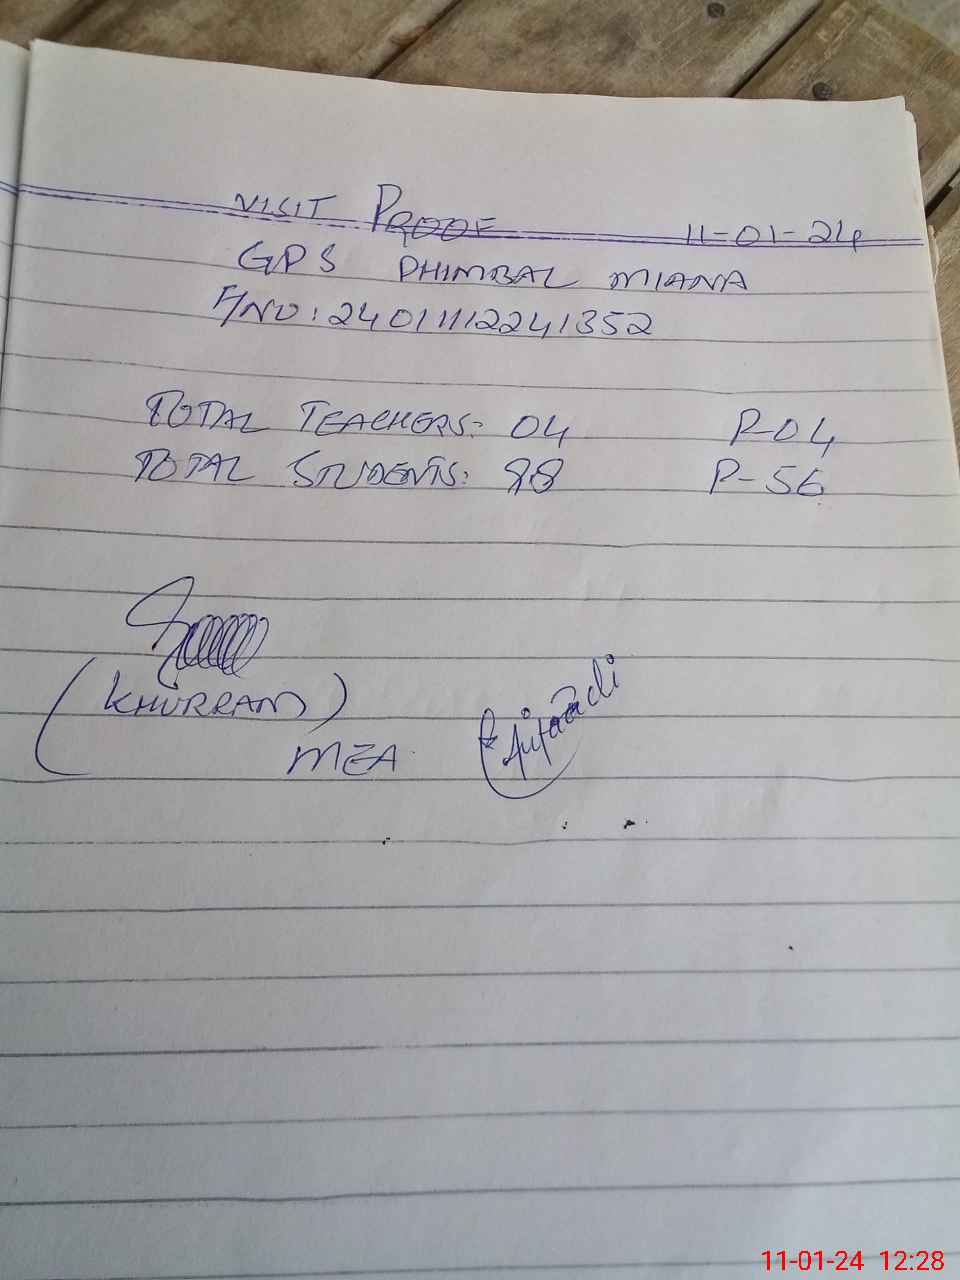 VISIT PROOF 11-01-24
GPS DHIMBAL MIANA
F/NO: 24011112241352
TOTAL TEACHERS: 04 P-04
TOTAL STUDENTS: 98 P-56
(KHURRAM)
MEA
11-01-24 12:28